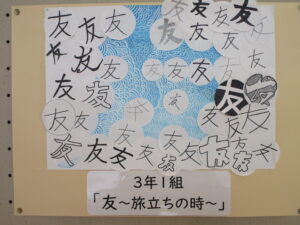 友 友 友 友 友 友
友 友 友 友 友 友
友 友 友 友 友 友
友 友 友 友 友 友 友
友 友 友 友 友 友 友 友
3年1組
「友～旅立ちの時～」